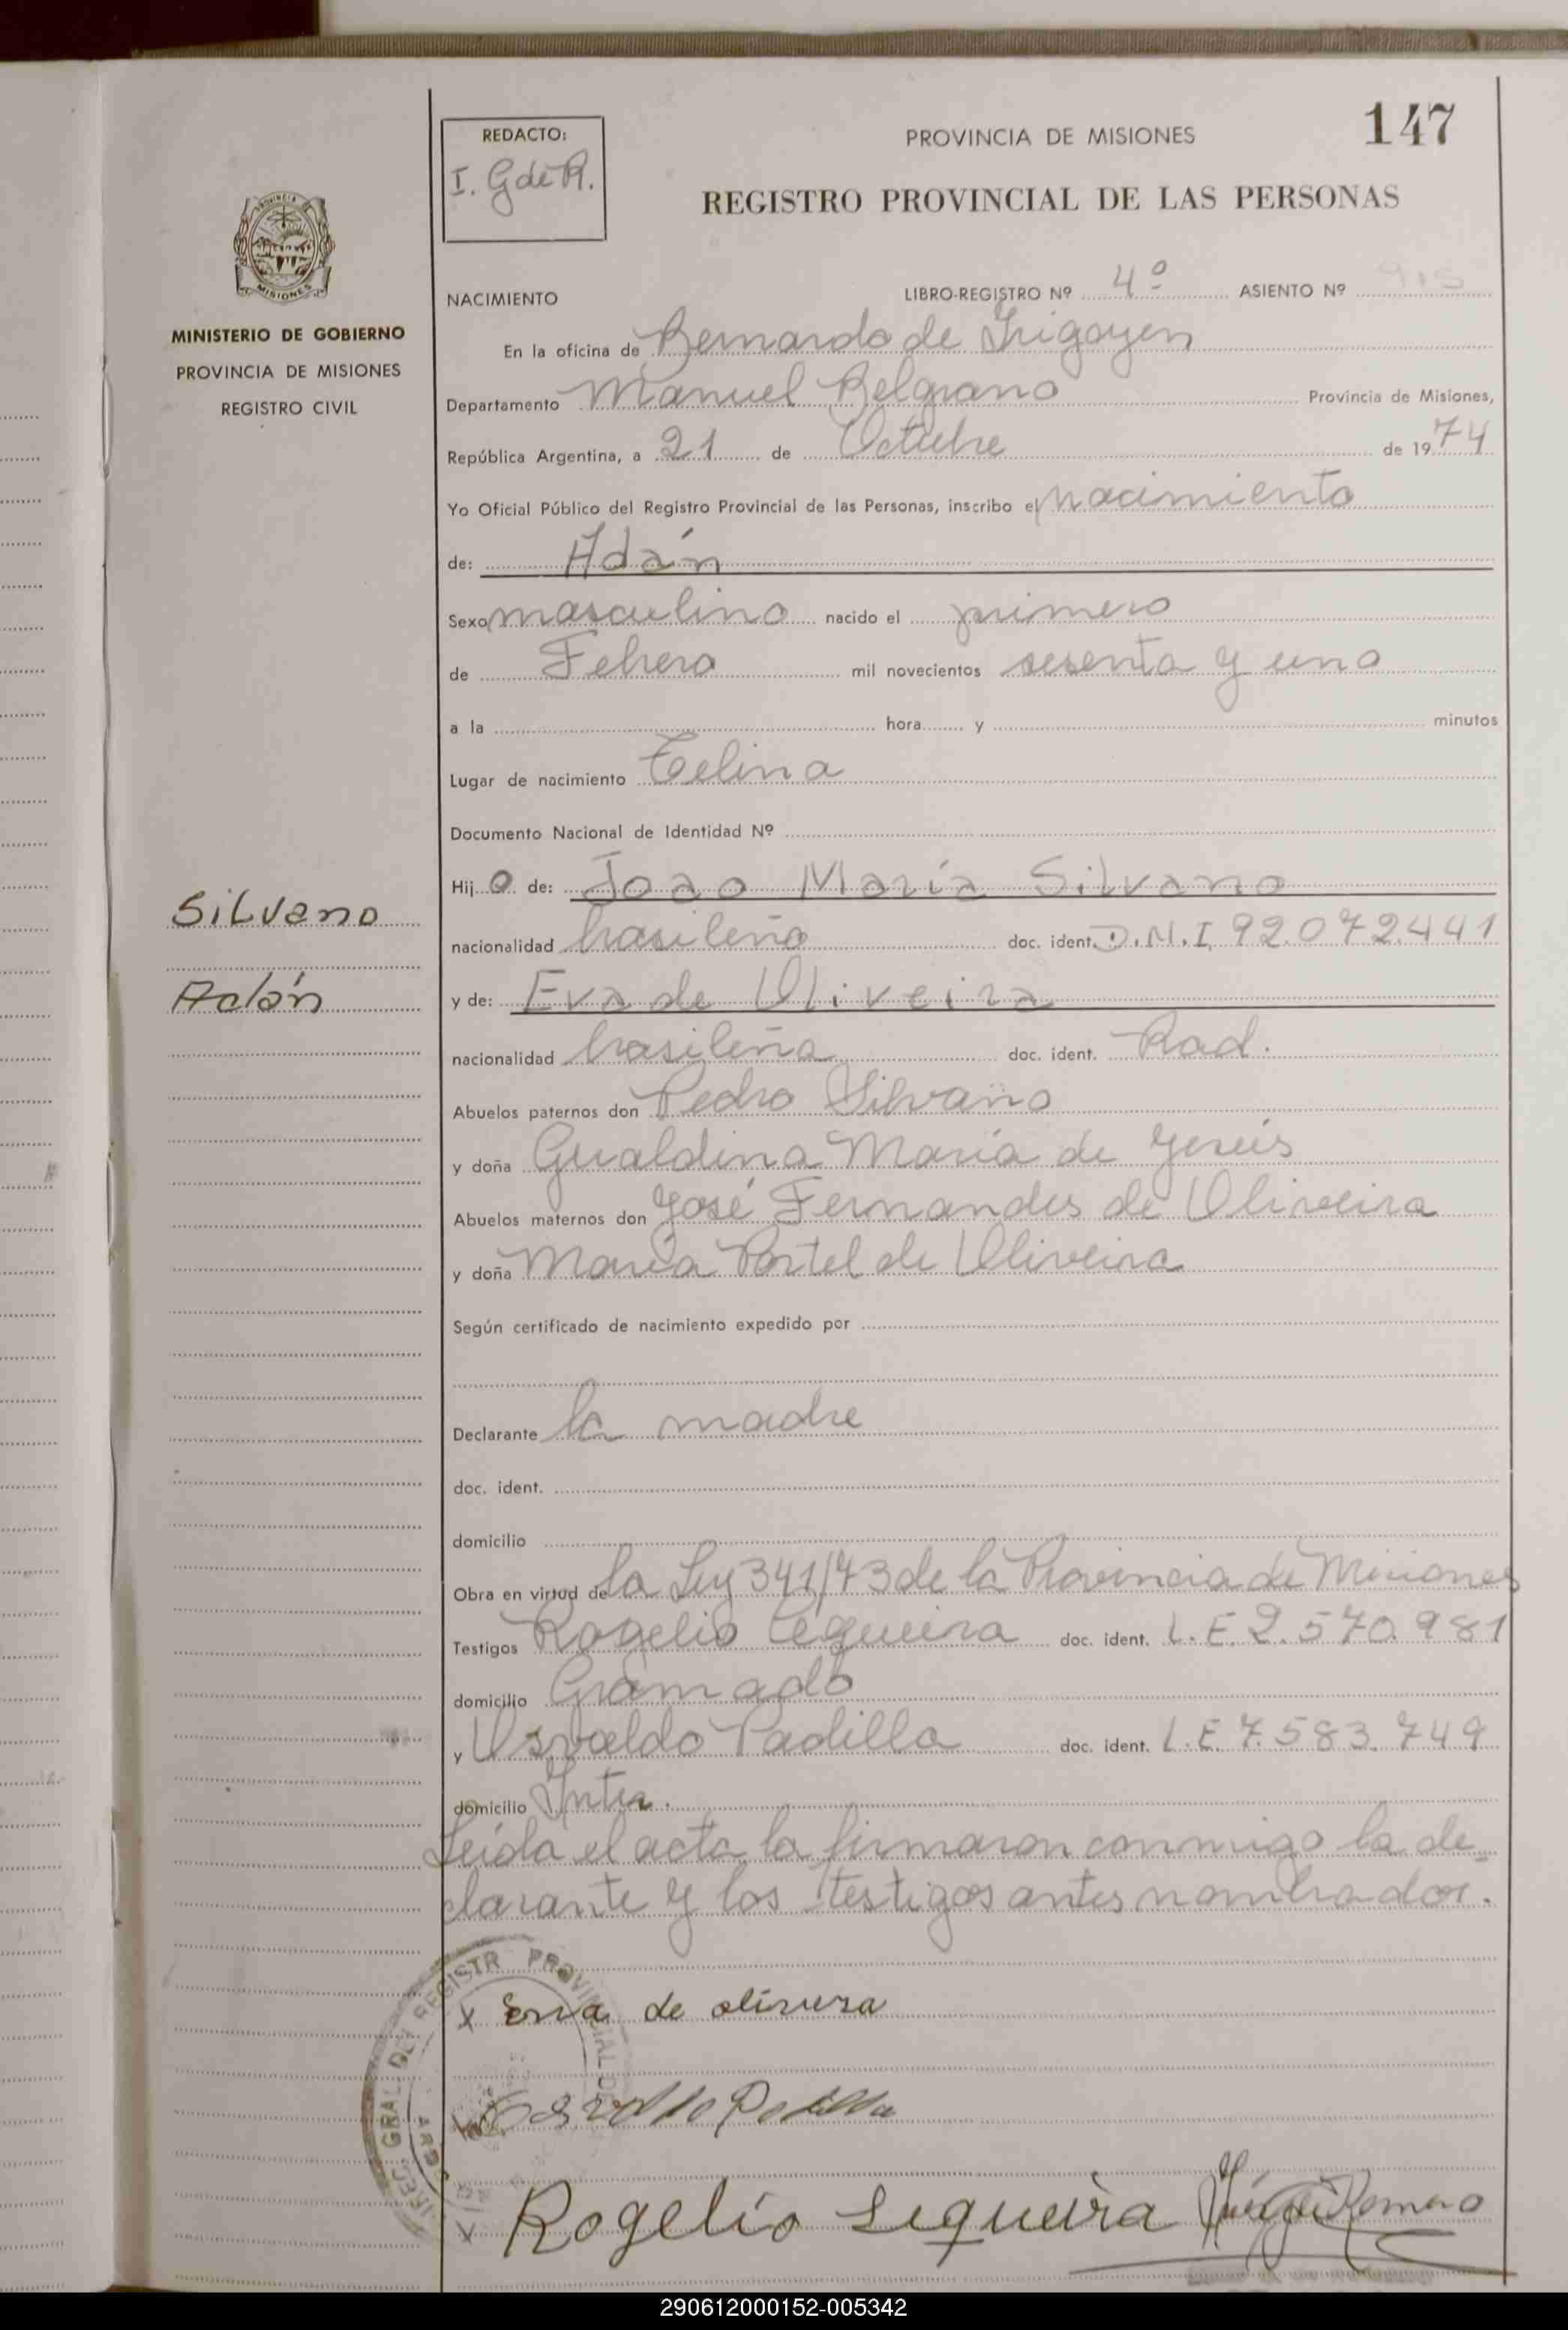 147
REDACTO:
I. G de R.
PROVINCIA DE MISIONES
REGISTRO PROVINCIAL DE LAS PERSONAS
PROVINCIA DE
MISIONES
MINISTERIO DE GOBIERNO
PROVINCIA DE MISIONES
REGISTRO CIVIL
NACIMIENTO LIBRO-REGISTRO Nº 4º ASIENTO Nº
En la oficina de Bernardo de Irigoyen
Departamento Manuel Belgrano Provincia de Misiones,
República Argentina, a 21 de Octubre de 1974
Yo Oficial Público del Registro Provincial de las Personas, inscribo el nacimiento
de: Adán
Sexo masculino nacido el primero
de Febrero mil novecientos sesenta y uno
a la hora y minutos
Lugar de nacimiento Celina
Documento Nacional de Identidad Nº
Hij o de: Joao María Silvano
nacionalidad brasileño doc. ident. D.N.I. 92.072.441
y de: Eva de Oliveira
nacionalidad brasileña doc. ident. Rad.
Abuelos paternos don Pedro Silvano
y doña Gualdina María de Jesús
Abuelos maternos don José Fernandes de Oliveira
y doña María Portel de Oliveira
Según certificado de nacimiento expedido por
Declarante la madre
doc. ident.
domicilio
Obra en virtud de la Ley 341/73 de la Provincia de Misiones
Testigos Rogelio Cequeira doc. ident. L.E. 2.570.981
domicilio Gramado
y Osvaldo Padilla doc. ident. L.E. 7.583.749
domicilio Inter.
Leída el acta la firmaron conmigo la de-
clarante y los testigos antes nombrados.
Silvano
Adán
x Erva de olivera
Osvaldo Padilla
x Rogelio Sequeira
290612000152-005342